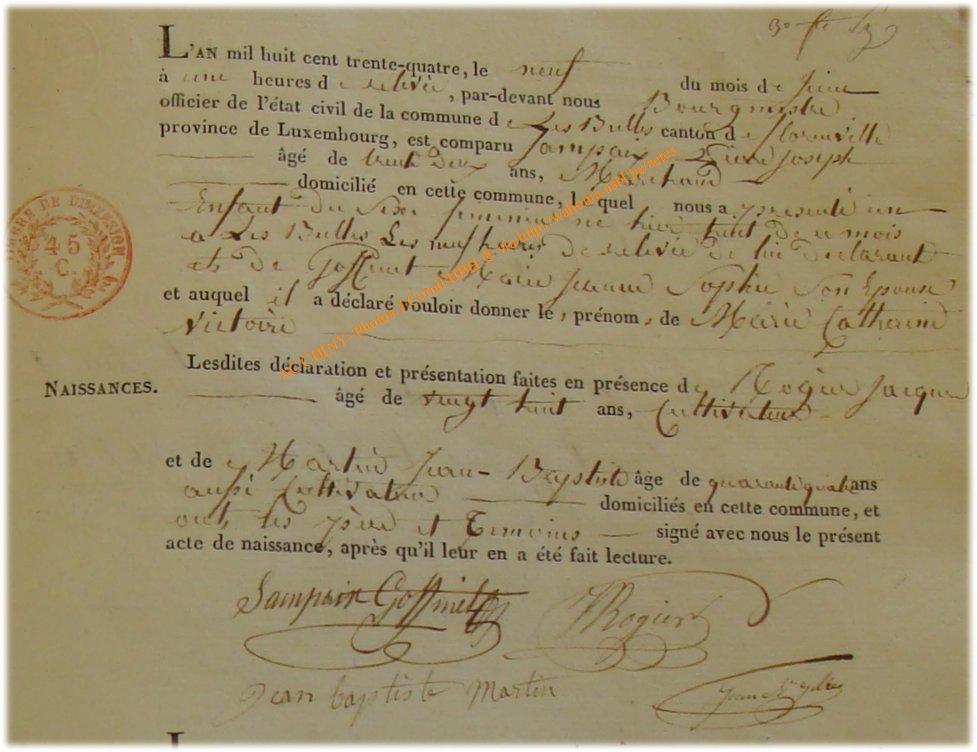 L'AN mil huit cent trente-quatre, le neuf du mois de Juin
à une heures de relevée, par-devant nous Bourgmestre
officier de l'état civil de la commune de Les Bulles canton de florenville
province de Luxembourg, est comparu Sampaix Pierre Joseph
âgé de trente deux ans, Marchand
domicilié en cette commune, lequel nous a présenté un
Enfant du Sexe feminin né hier huit de ce mois
a Les Bulles Les neuf heures de relevée de lui déclarant
et de Goffinet Marie Jeanne Sophie Son Epouse
et auquel il a déclaré vouloir donner les prénoms de Marie Catherine
Victoire
Lesdites déclaration et présentation faites en présence de Rogier Jacques
NAISSANCES.
âgé de vingt huit ans, Cultivateur
et de Martin Jean-Baptiste âge de quarante quatre ans
aussi Cultivateur domiciliés en cette commune, et
ont les père et Temoins signé avec nous le présent
acte de naissance, après qu'il leur en a été fait lecture.
Sampaix Goffinet Rogier
Jean baptiste Martin
TIMBRE DE DIMENSION
45
C.